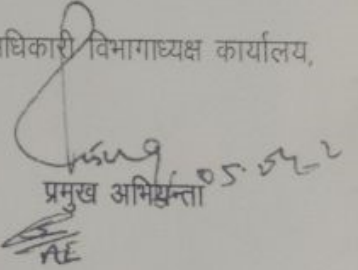 धिकारी विभागाध्यक्ष कार्यालय,
प्रमुख अभियन्ता
AE